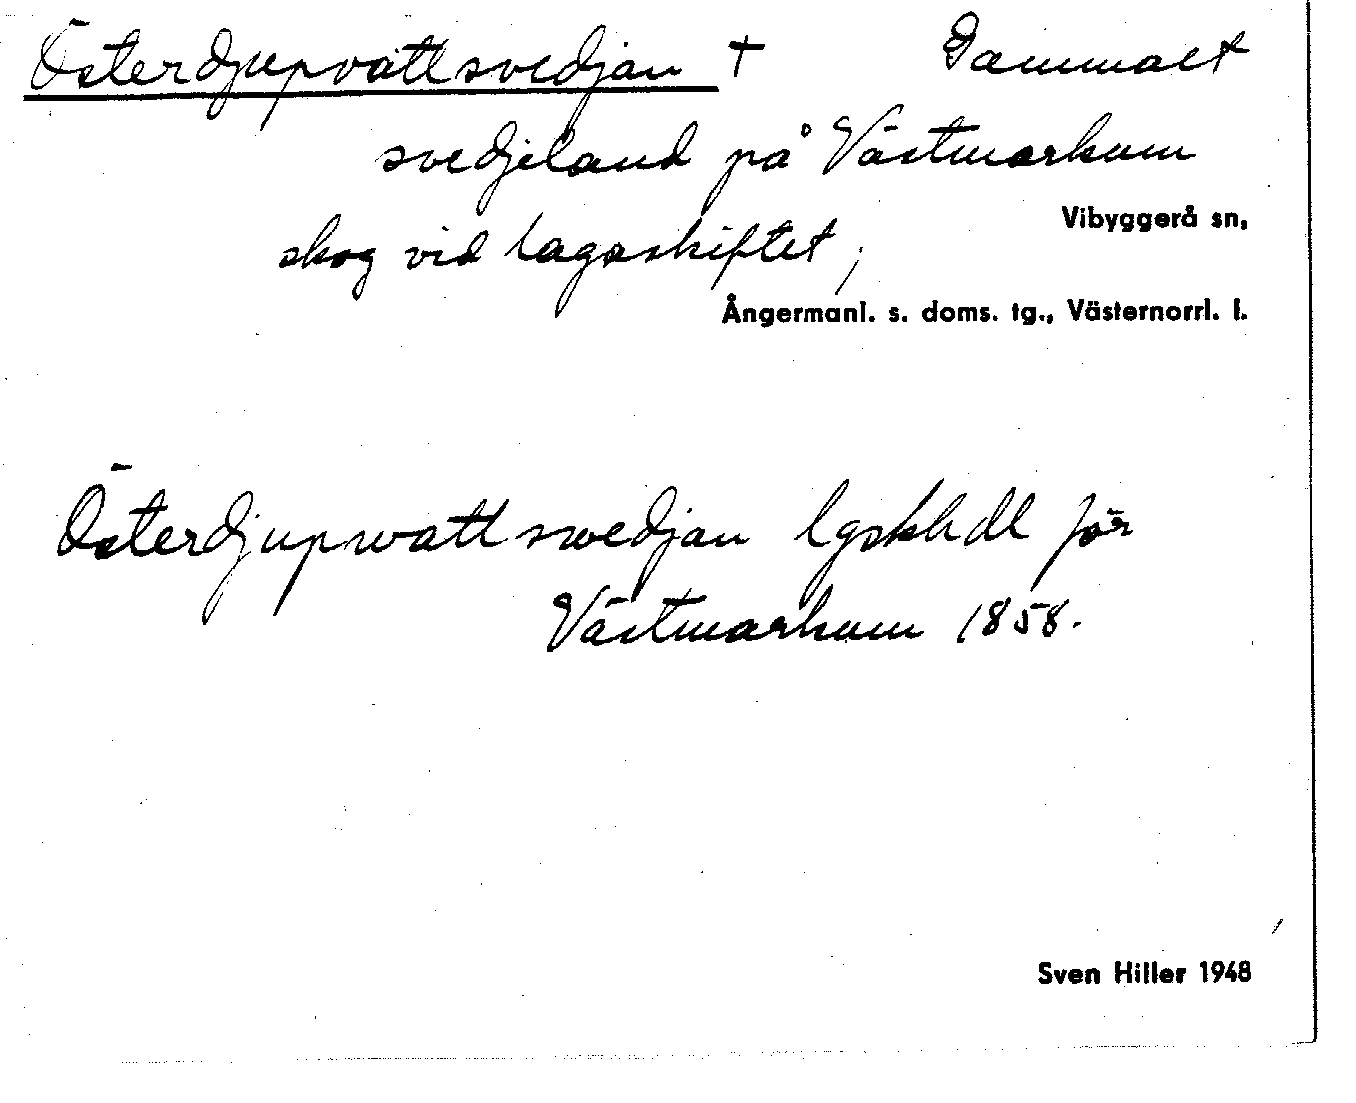 Österdjupvattsvedjan † Gammalt
svedjeland på Västmarkum
Vibyggerå sn,
skog vid lagaskiftet;
Ångermanl. s. doms. tg., Västernorrl. l.
Österdjupwattswedjan lgskhdl för
Västmarkum 1858.
Sven Hiller 1948